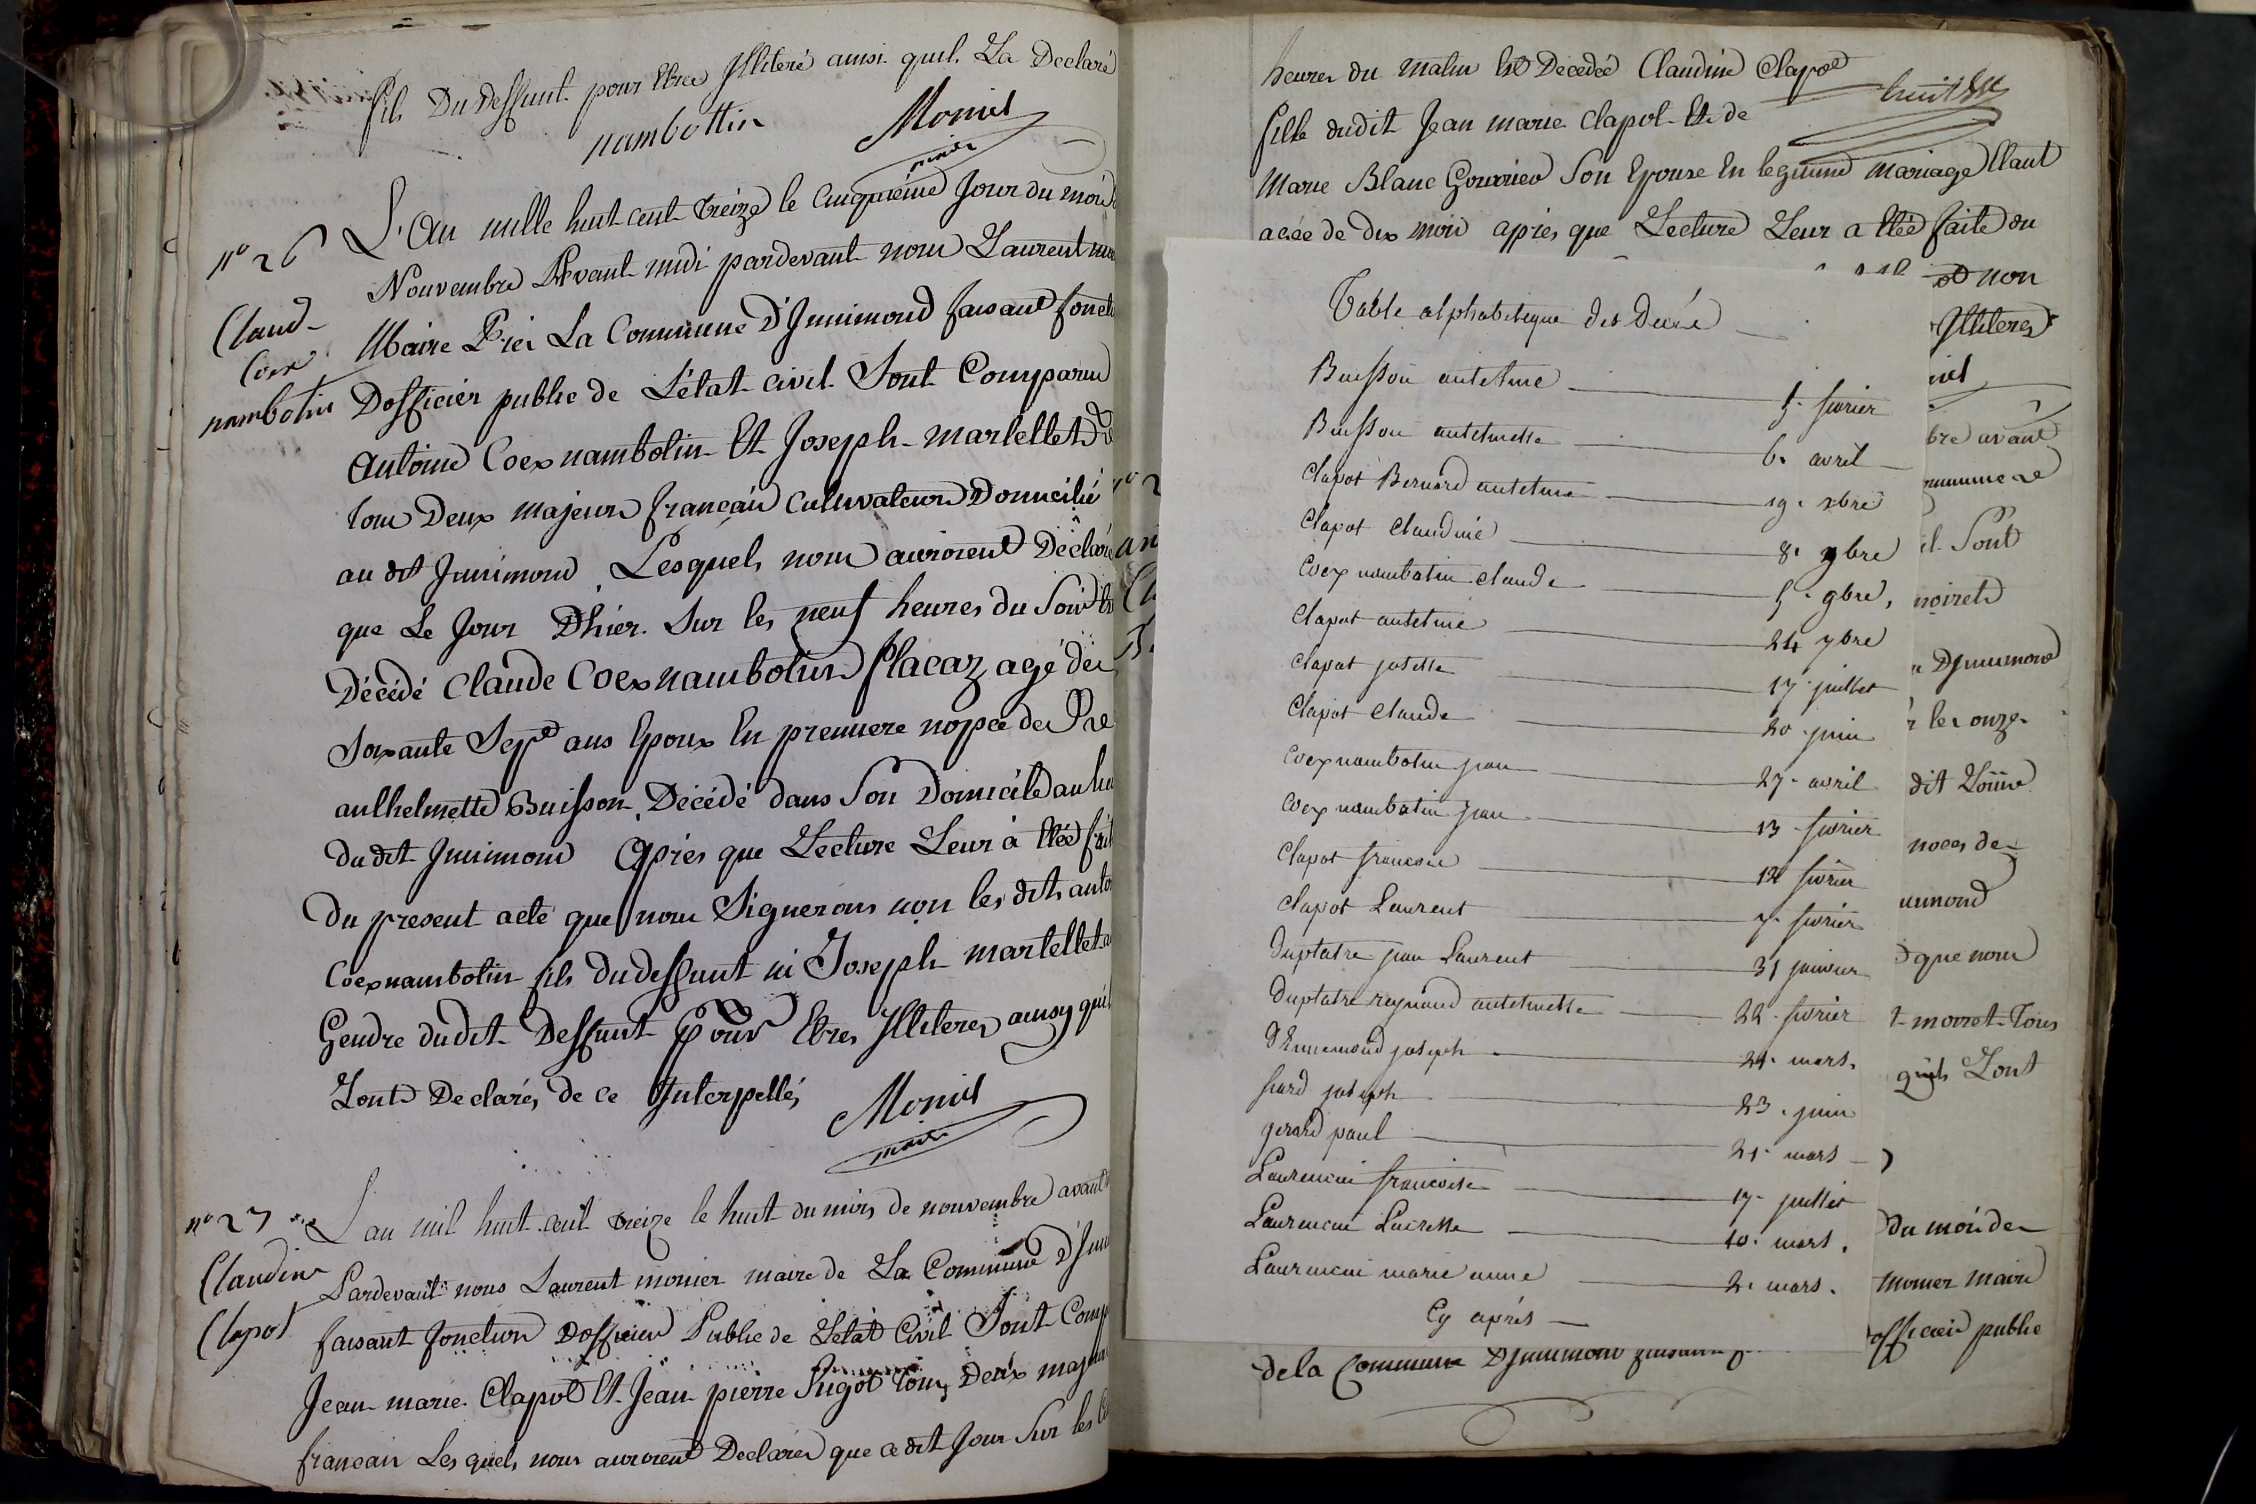 fils Du deffunt pour Etre Illiteré ainsi quil La Declaré
nambottin Monié
maire
n° 26
Claud-
Coex
nambotin
L'An mille huit cent treize le cinquiéme Jour du mois
Nouvembre Devant midi pardevant nous Laurent
Maire Prei La Commune D'Jnnimond faisant
Dofficier public de L'état civil Sont Comparu
Antoine Coexnambotin Et Joseph martellet
tous Deux majeurs français Cultivateurs Domicilié
au dit Jnnimond Lesquels nous auroient Déclaré
que Le Jour D'hier Sur les neuf heures du Soir
Décédé Claude Coexnambotin Placaz agé de
Soixante Sept ans Epoux En premiere nopce de
anthelmette Buisson Décédé dans Son Domicile au
dudit Jnnimond Apries que Lecture Leur à Etée
Du present acte que nous Signerons non les dits
Coexnambotin fils du deffunt ni Joseph martellet
Gendre dudit Deffunt Pour Etres Illiteres ainsy
Lont Declarés de ce Interpellés
Monié
maire
n° 27
Claudine
Clapot
L'an mil huit cent treize le huit du mois de nouvembre avant
Pardevant nous Laurent monier maire de La Commune
faisant fonction Dofficier Public de Letat Civil Sont
Jean marie Clapot Et Jean pierre Pugot tous Deux
francair Les quels nous auroient Declarés que ce dit Jour Sur les
heures du matin Est Décedée Claudine Clapot
fille dudit Jean marie Clapot Et de
Marie Blanc Gonrieu Son Epouse En legitime mariage Etant
agée de dix mois apries que Lecture Leur a Etée faite du
non
Illiteres
Table alphabetique des Décés
Buisson antelme 5. fevrier
Buisson antelmette 6. avril
Clapot Bernard antelme 19. xbre
Clapot Claudine 8. 9bre
Coex nambotin claude 5. 9bre,
Clapot antelme 24 7bre
Clapot josette 17. juillet
Clapot Claude 20 juin
Coexnambotin jean 27. avril
Coex nambotin jean 13 fevrier
Clapot francoise 12 fevrier
Clapot Laurent 7. fevrier
Duplatre jean Laurent 31 janvier
Duplatre reynaud antelmette 22. fevrier
D'Ennemond joseph 21. mars.
fiard joseph 23. juin
gerard paul 21. mars
Laurencin francoise 17. juillet
Laurencin Lucresse 10. mars.
Laurencin marie anne 2. mars.
Cy aprés
bre avant
Sont
Djnnimond
les onze
dit
noces de
que nous
moiret Tous
quils Lont
du mois de
monier maire
officier public
de la Commune Djnnimond faisant